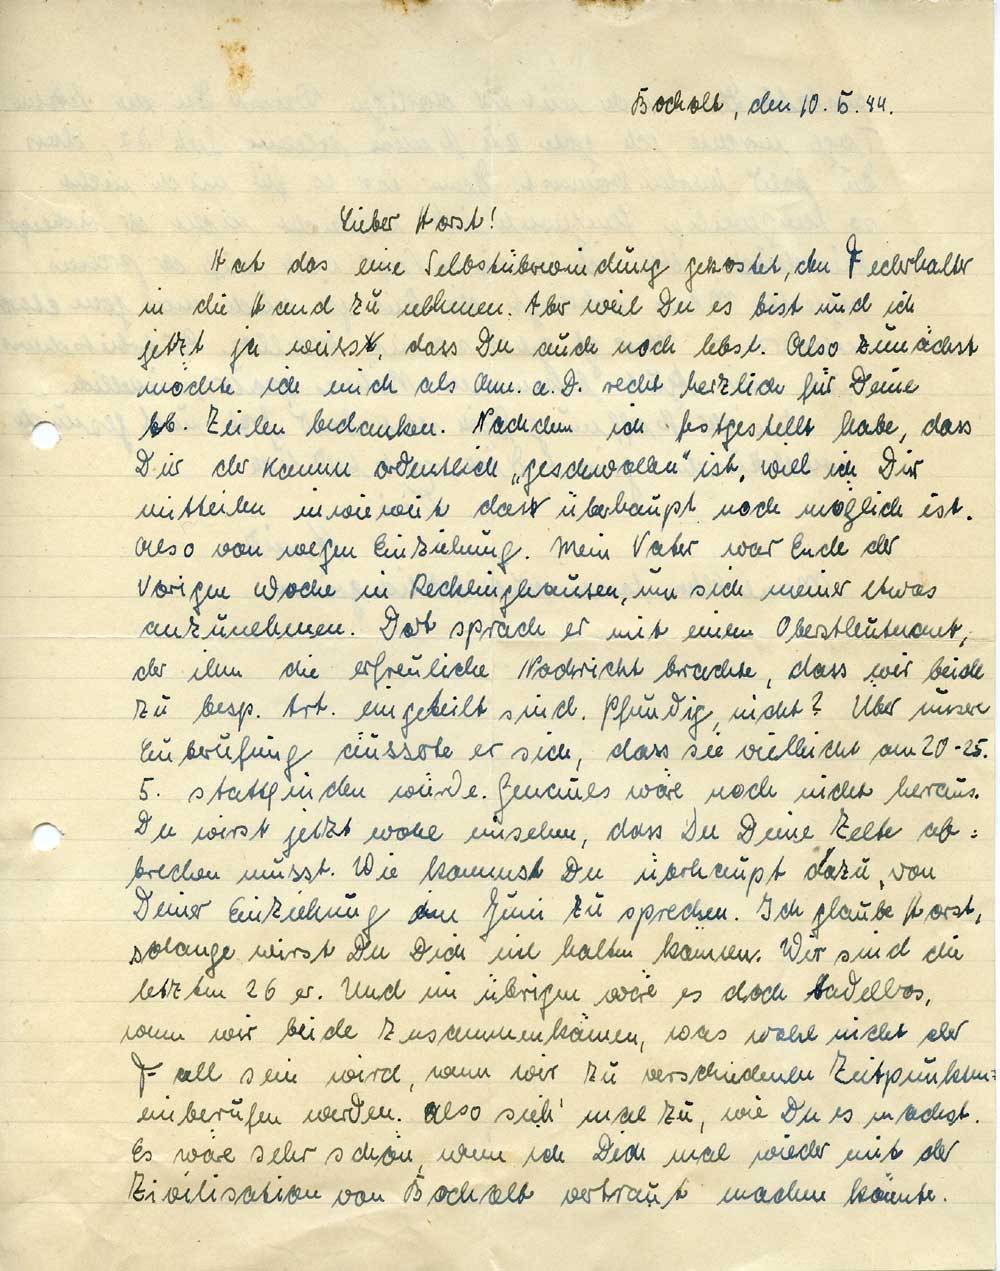 Bocholt, den 10.5.44.
Lieber Horst!
Hat das eine Selbstüberwindung gekostet, den Federhalter
in die Hand zu nehmen. Aber weil Du es bist und ich
jetzt ja weiss, dass Du auch noch lebst. Also zunächst
möchte ich mich als Ann. a. D. recht herzlich für Deine
lb. Zeilen bedanken. Nachdem ich festgestellt habe, dass
Dir der Kamm ordentlich „geschwollen" ist, will ich Dir
mitteilen inwieweit das überhaupt noch möglich ist.
Also von wegen Einziehung. Mein Vater war Ende der
vorigen Woche in Recklinghausen, um sich meiner etwas
anzunehmen. Dort sprach er mit einem Oberstleutnant,
der ihm die erfreuliche Nachricht brachte, dass wir beide
zu besp. Art. eingeteilt sind. Pfundig, nicht? Über unsere
Einberufung äusserte er sich, dass sie vielleicht am 20-25.
5. stattfinden würde. Genaues wäre noch nicht heraus.
Du wirst jetzt wohl einsehen, dass Du Deine Zelte ab=
brechen musst. Wie kommst Du überhaupt dazu, von
Deiner Einziehung im Juni zu sprechen. Ich glaube Horst,
solange wirst Du Dich nit halten können. Wir sind die
letzten 26 er. Und im übrigen wäre es doch tadellos,
wenn wir beide zusammenkämen, was wohl nicht der
Fall sein wird, wenn wir zu verschiedenen Zeitpunkten
einberufen werden. Also sieh' mal zu, wie Du es machst.
Es wäre sehr schön, wenn ich Dich mal wieder mit der
Zivilisation von Bocholt vertraut machen könnte.